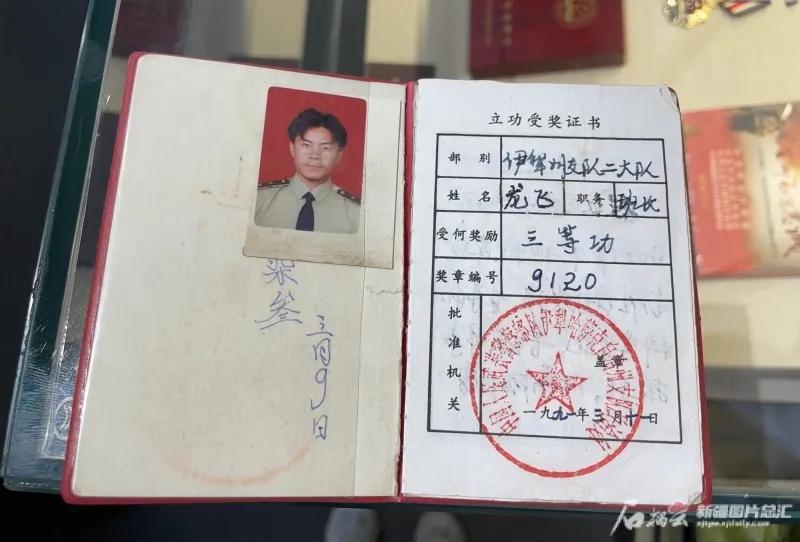 柒叁
三月9日
立功受奖证书
部别 伊犁州支队二大队
姓名 龙飞 职务 班长
受何奖励 三等功
奖章编号 9120
批准机关
盖章
一九九一年三月十一日
石榴云 新疆图片总汇
xjtpw.xjdaily.com